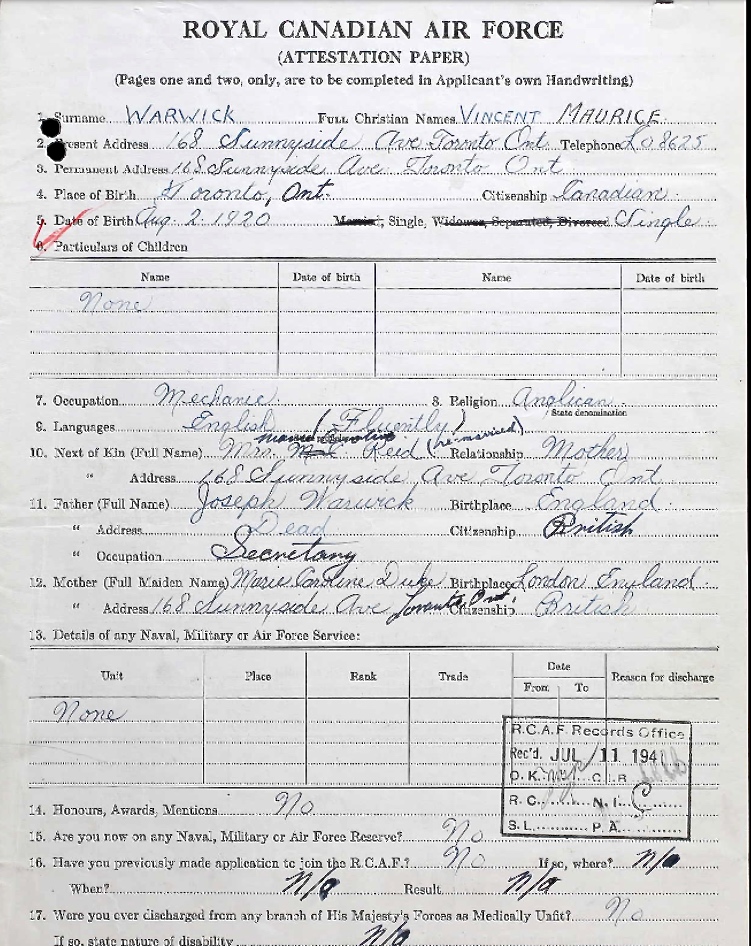 ROYAL CANADIAN AIR FORCE
(ATTESTATION PAPER)
(Pages one and two, only, are to be completed in Applicant's own Handwriting)
1. Surname WARWICK Full Christian Names VINCENT MAURICE
2. Present Address 168 Sunnyside Ave Toronto Ont Telephone Lo 8625
3. Permanent Address 168 Sunnyside Ave Toronto Ont
4. Place of Birth Toronto, Ont. Citizenship Canadian
5. Date of Birth Aug 2 1920 Married, Single, Widower, Separated, Divorced Single
6. Particulars of Children
Name Date of birth Name Date of birth
None
7. Occupation Mechanic 8. Religion Anglican
State denomination
9. Languages English (Fluently)
10. Next of Kin (Full Name) Mrs. Reid (re-married) Relationship Mother
" Address 168 Sunnyside Ave Toronto Ont
11. Father (Full Name) Joseph Warwick Birthplace England
" Address Dead Citizenship British
" Occupation Secretary
12. Mother (Full Maiden Name) Marie Caroline Duke Birthplace London England
" Address 168 Sunnyside Ave Toronto Ont. Citizenship British
13. Details of any Naval, Military or Air Force Service:
Unit Place Rank Trade Date Reason for discharge
From To
None
R.C.A.F. Records Office
Rec'd. JUL 11 194
O.K. C.I.R
R.C. N.I.
S.L. P.A.
14. Honours, Awards, Mentions No
15. Are you now on any Naval, Military or Air Force Reserve? No
16. Have you previously made application to join the R.C.A.F.? No If so, where? n/a
When? n/a Result n/a
17. Were you ever discharged from any branch of His Majesty's Forces as Medically Unfit? No
If so, state nature of disability n/a